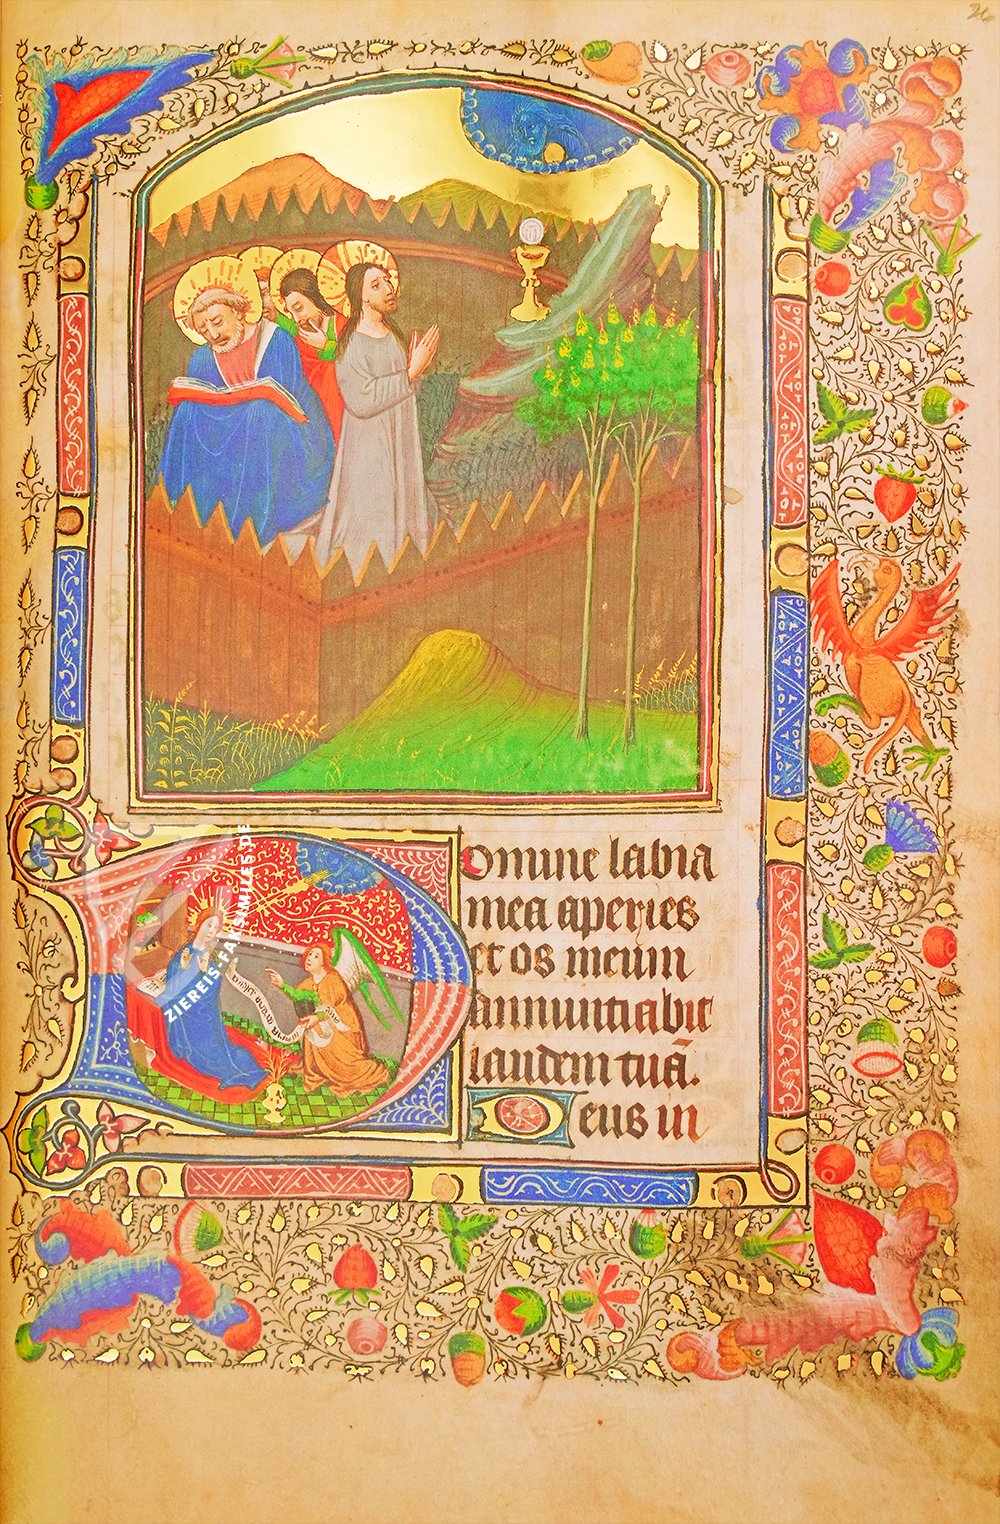 26
Domine labia
mea aperies
et os meum
annuntiabit
laudem tuā.
Deus in
ZIEREIS-FACSIMILES.DE